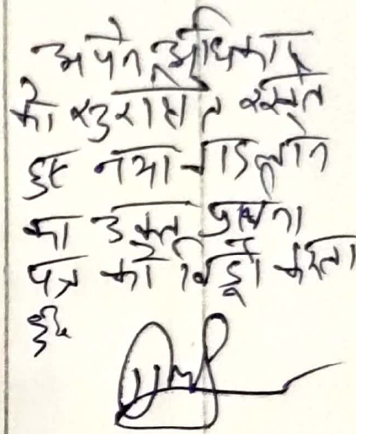 अपने अधिकार
को सुरक्षित रखते
हुए नया
का उक्त प्रार्थना
पत्र को विड्रॉ करता
हूँ